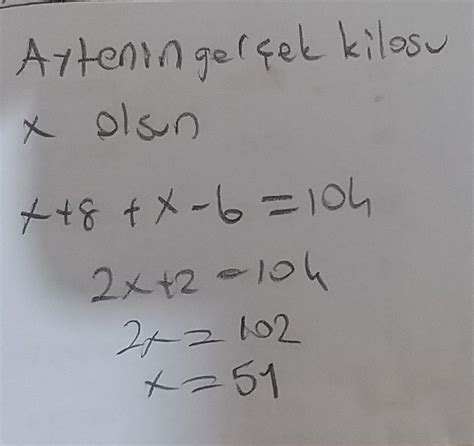 Aytenin gerçek kilosu
x olsun
x+8 + x-6 = 104
2x+2 = 104
2x = 102
x = 51